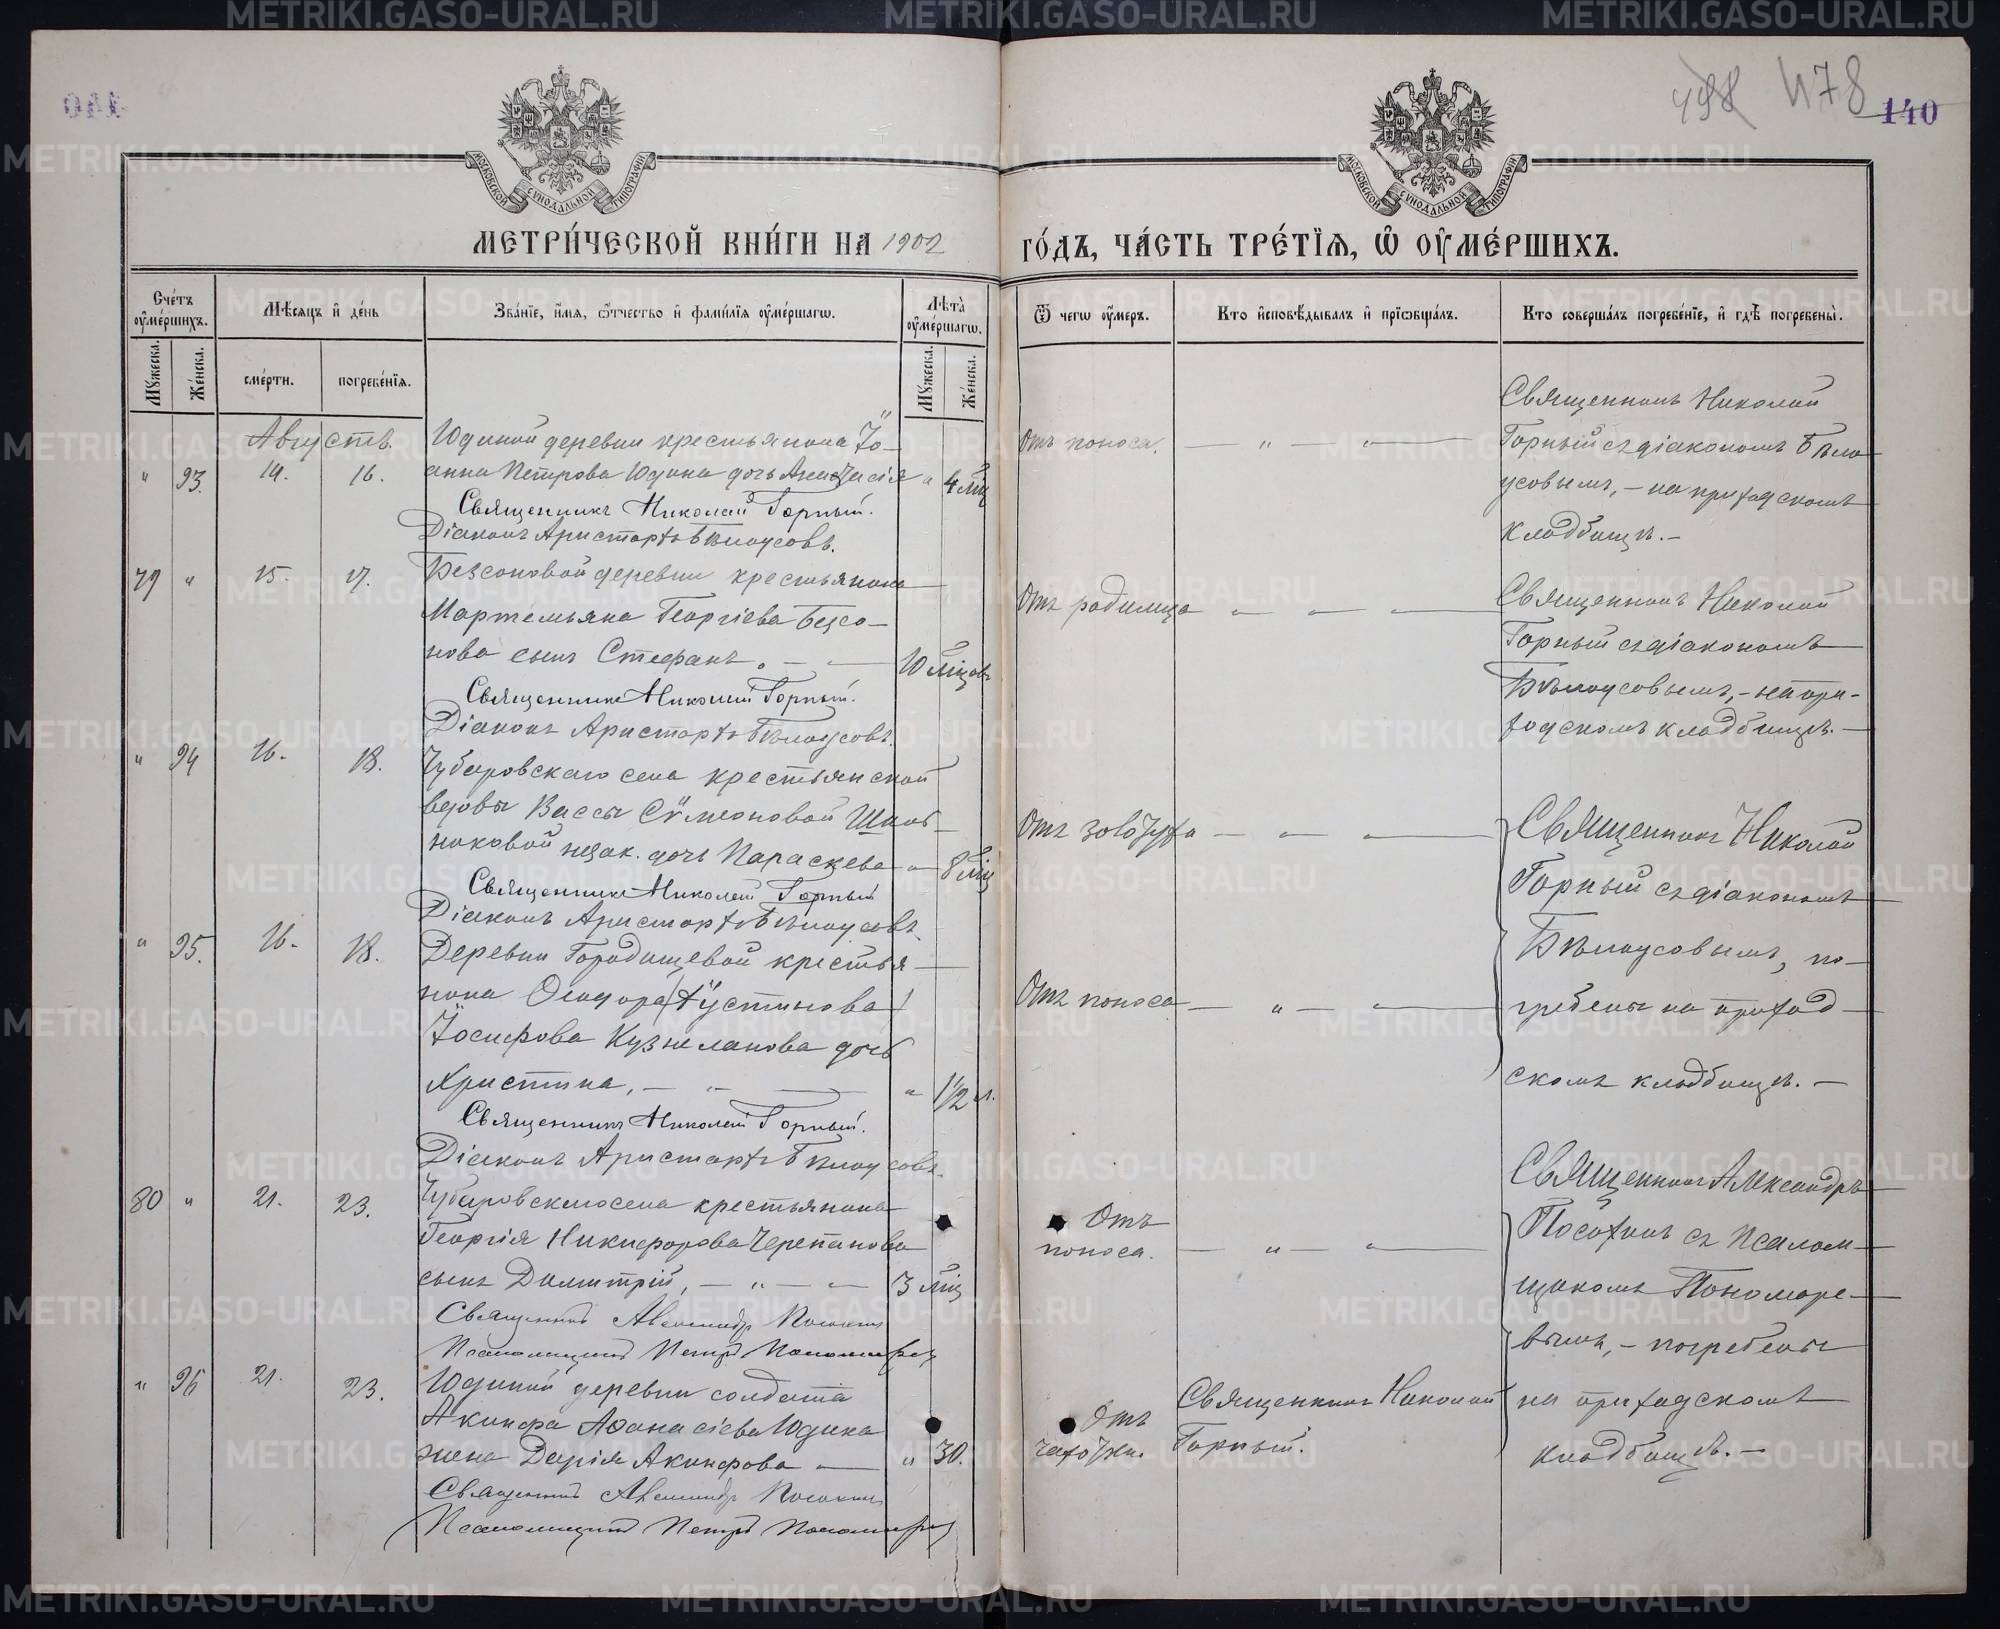 498 478 140
МОСКОВСКОЙ СУНОДАЛЬНОЙ ТИПОГРАФІИ
МОСКОВСКОЙ СУНОДАЛЬНОЙ ТИПОГРАФІИ
МЕТРИ́ЧЕСКОЙ КНИ́ГИ НА 1902
ГО́ДЪ, ЧА́СТЬ ТРЕ́ТЇѦ, Ѡ҆ ОУ҆МЕ́РШИХЪ.
Сче́тъ оу҆ме́ршихъ.
Мѣ́сяцъ и҆ де́нь
Зва́нїе, и҆́мя, ѻ҆́тчество и҆ фами́лїя оу҆ме́ршагѡ.
Лѣ́та оу҆ме́ршагѡ.
Ѿ чегѡ̀ оу҆́меръ.
Кто̀ и҆сповѣ́дывалъ и҆ прїѡбща́лъ.
Кто̀ соверша́лъ погребе́нїе, и҆ гдѣ̀ погребены̀.
Мꙋ́жеска. Же́нска. сме́рти. погребе́нїя. Мꙋ́жеска. Же́нска.
Августъ.
" 93. 14. 16.
Юдиной деревни крестьянина Іо-
анна Петрова Юдина дочь Анастасія " 4 мѣс
Священникъ Николай Горный.
Діаконъ Аристархъ Бѣлоусовъ.
Отъ поноса. — " — " —
Священникъ Николай
Горный съ діакономъ Бѣло-
усовымъ, - на приходскомъ
кладбищѣ. -
79 " 15. 17.
Безсоновой деревни крестьянина
Мартемьяна Георгіева Безсо-
нова сынъ Стефанъ. — " — 10 мѣсяцовъ
Священникъ Николай Горный.
Діаконъ Аристархъ Бѣлоусовъ.
Отъ родимца " — " — " —
Священникъ Николай
Горный съ діакономъ
Бѣлоусовымъ, - на при-
ходскомъ кладбищѣ. -
" 94 16. 18.
Чубаровскаго села крестьянской
вдовы Вассы Сѵмеоновой
незак. дочь Параскева — " — 8 мѣс
Священникъ Николай Горный
Діаконъ Аристархъ Бѣлоусовъ.
Отъ золотухи — " — " —
Священникъ Николай
Горный съ діакономъ
Бѣлоусовымъ, по-
гребены на приход-
скомъ кладбищѣ. -
" 95. 16. 18.
Деревни Городищевой крестья-
нина Ѳеодора (Іустинова)
Іосифова дочь
Христина, — " — " 1 1/2 л.
Священникъ Николай Горный.
Діаконъ Аристархъ Бѣлоусовъ.
Отъ поноса — " — " —
80 " 21. 23.
Чубаровскаго села крестьянина
Георгія Никифорова Черепанова
сынъ Димитрій, — " — " — 3 мѣс
Священникъ Александръ Посохинъ
Псаломщикъ Петръ Пономаревъ
Отъ
поноса. — " — " —
Священникъ Александръ
Посохинъ съ псалом-
щикомъ Пономаре-
вымъ, - погребены
на приходскомъ
кладбищѣ. -
" 96 21. 23.
Юдиной деревни солдата
Акинфа Аѳанасіева Юдина
жена Дарія Акинфова — " 30.
Священникъ Александръ Посохинъ
Псаломщикъ Петръ Пономаревъ
Отъ
чахотки.
Священникъ Николай
Горный.
METRIKI.GASO-URAL.RU